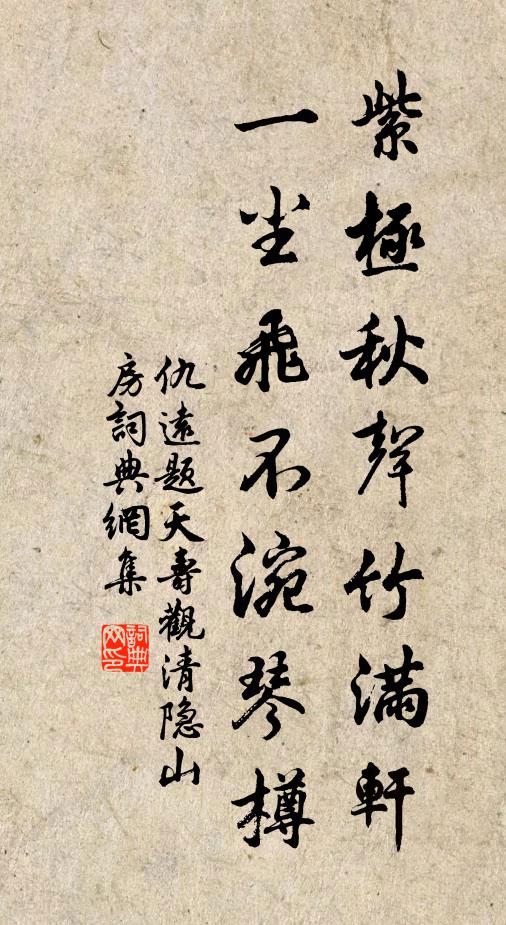 紫極秋聲竹滿軒
一塵飛不涴琴樽
仇遠題天壽觀清隐山
房詞典網集
詞典網印